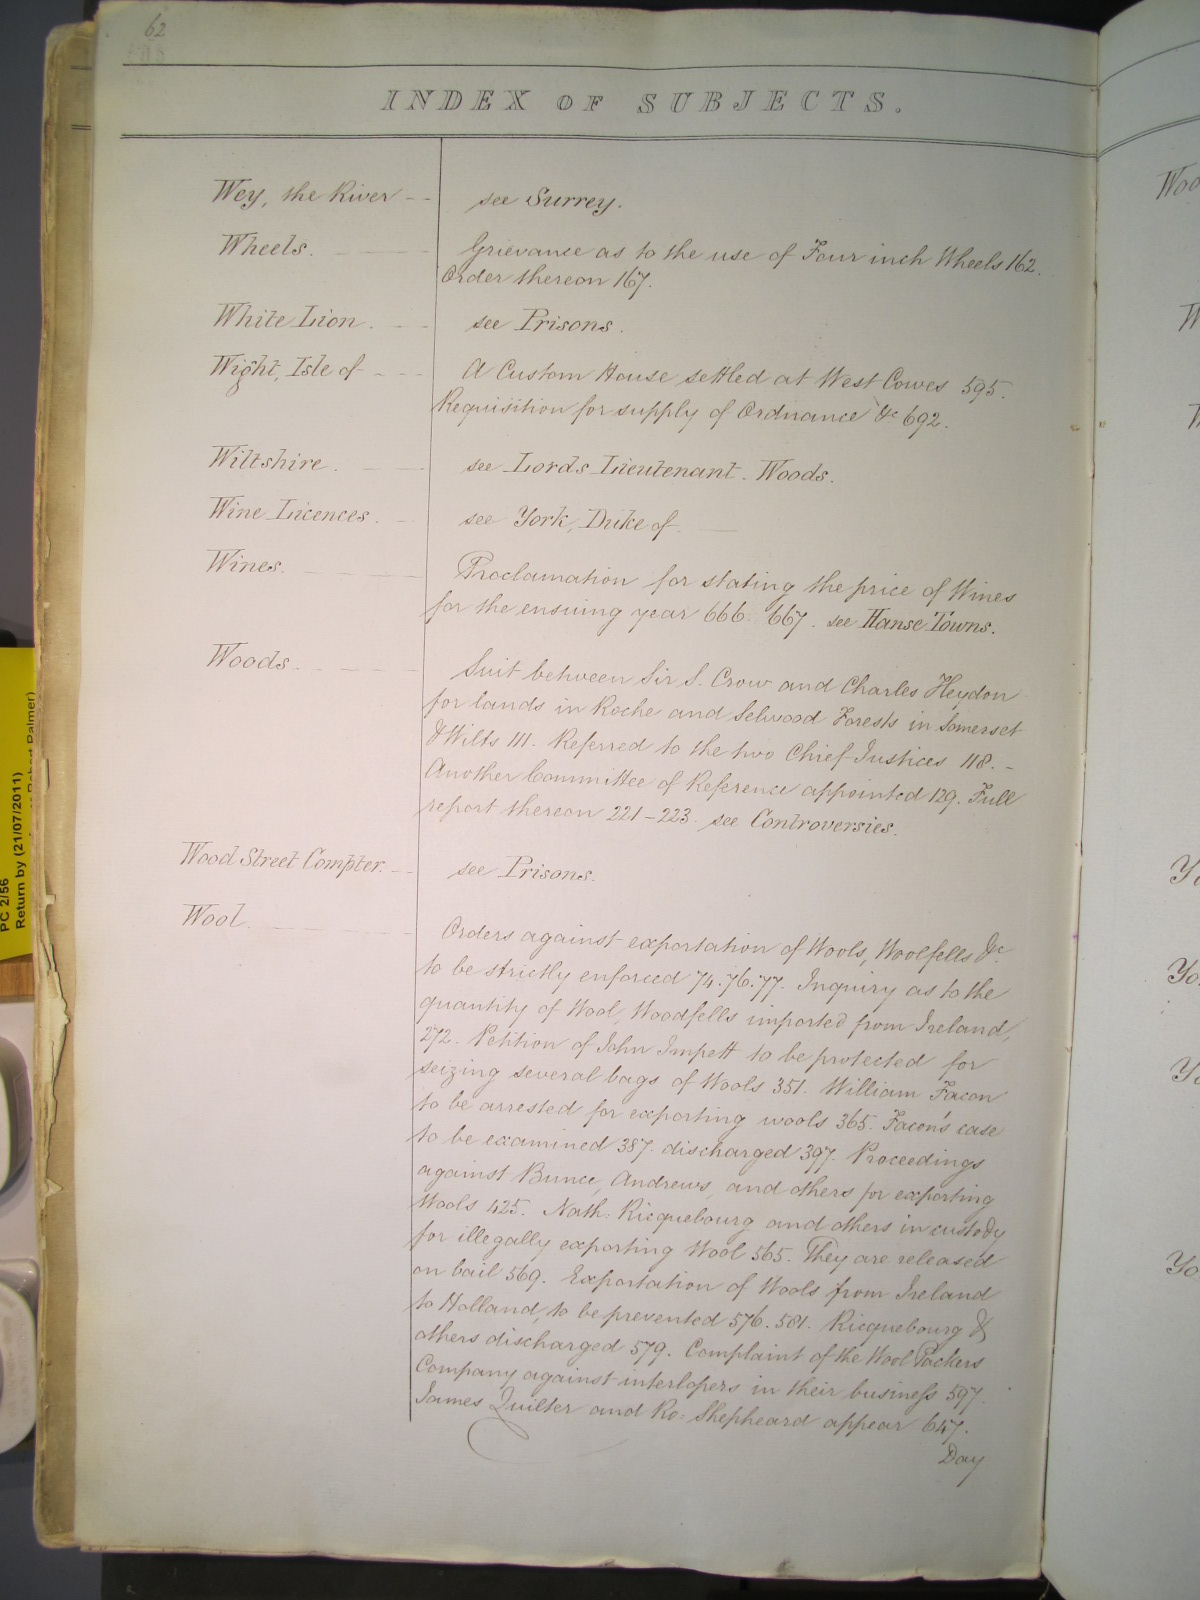 62
INDEX OF SUBJECTS.
Wey, the River -- see Surrey.
Wheels. Grievance as to the use of Four inch Wheels 162.
Order thereon 167.
White Lion. see Prisons.
Wight, Isle of --- A Custom House settled at West Cowes 595.
Requisition for supply of Ordnance &c 692.
Wiltshire. see Lords Lieutenant. Woods.
Wine Licences. see York, Duke of.
Wines. Proclamation for stating the price of Wines
for the ensuing year 666. 667. see Hanse Towns.
Woods. Suit between Sir S. Crow and Charles Heydon
for lands in Roche and Selwood Forests in Somerset
& Wilts 111. Referred to the two Chief Justices 118. -
Another Committee of Reference appointed 129. Full
report thereon 221-223. see Controversies.
Wood Street Compter. -- see Prisons.
Wool. Orders against exportation of Wools, Woolfells &c
to be strictly enforced 74.76.77. Inquiry as to the
quantity of Wool, Woodfells imported from Ireland,
272. Petition of John Impett to be protected for
seizing several bags of Wools 351. William Facon
to be arrested for exporting wools 365. Facon's case
to be examined 387. discharged 397. Proceedings
against Bunce, Andrews, and others for exporting
Wools 425. Nath: Ricquebourg and others in custody
for illegally exporting Wool 565. They are released
on bail 569. Exportation of Wools from Ireland
to Holland, to be prevented 576. 581. Ricquebourg &
others discharged 579. Complaint of the Wool Packers
Company against interlopers in their business 597.
James Quilter and Ro: Shepheard appear 647.
Day
PC 2/56
Return by (21/07/2011)
Robert Palmer)
Woo
W
Yo
Yo